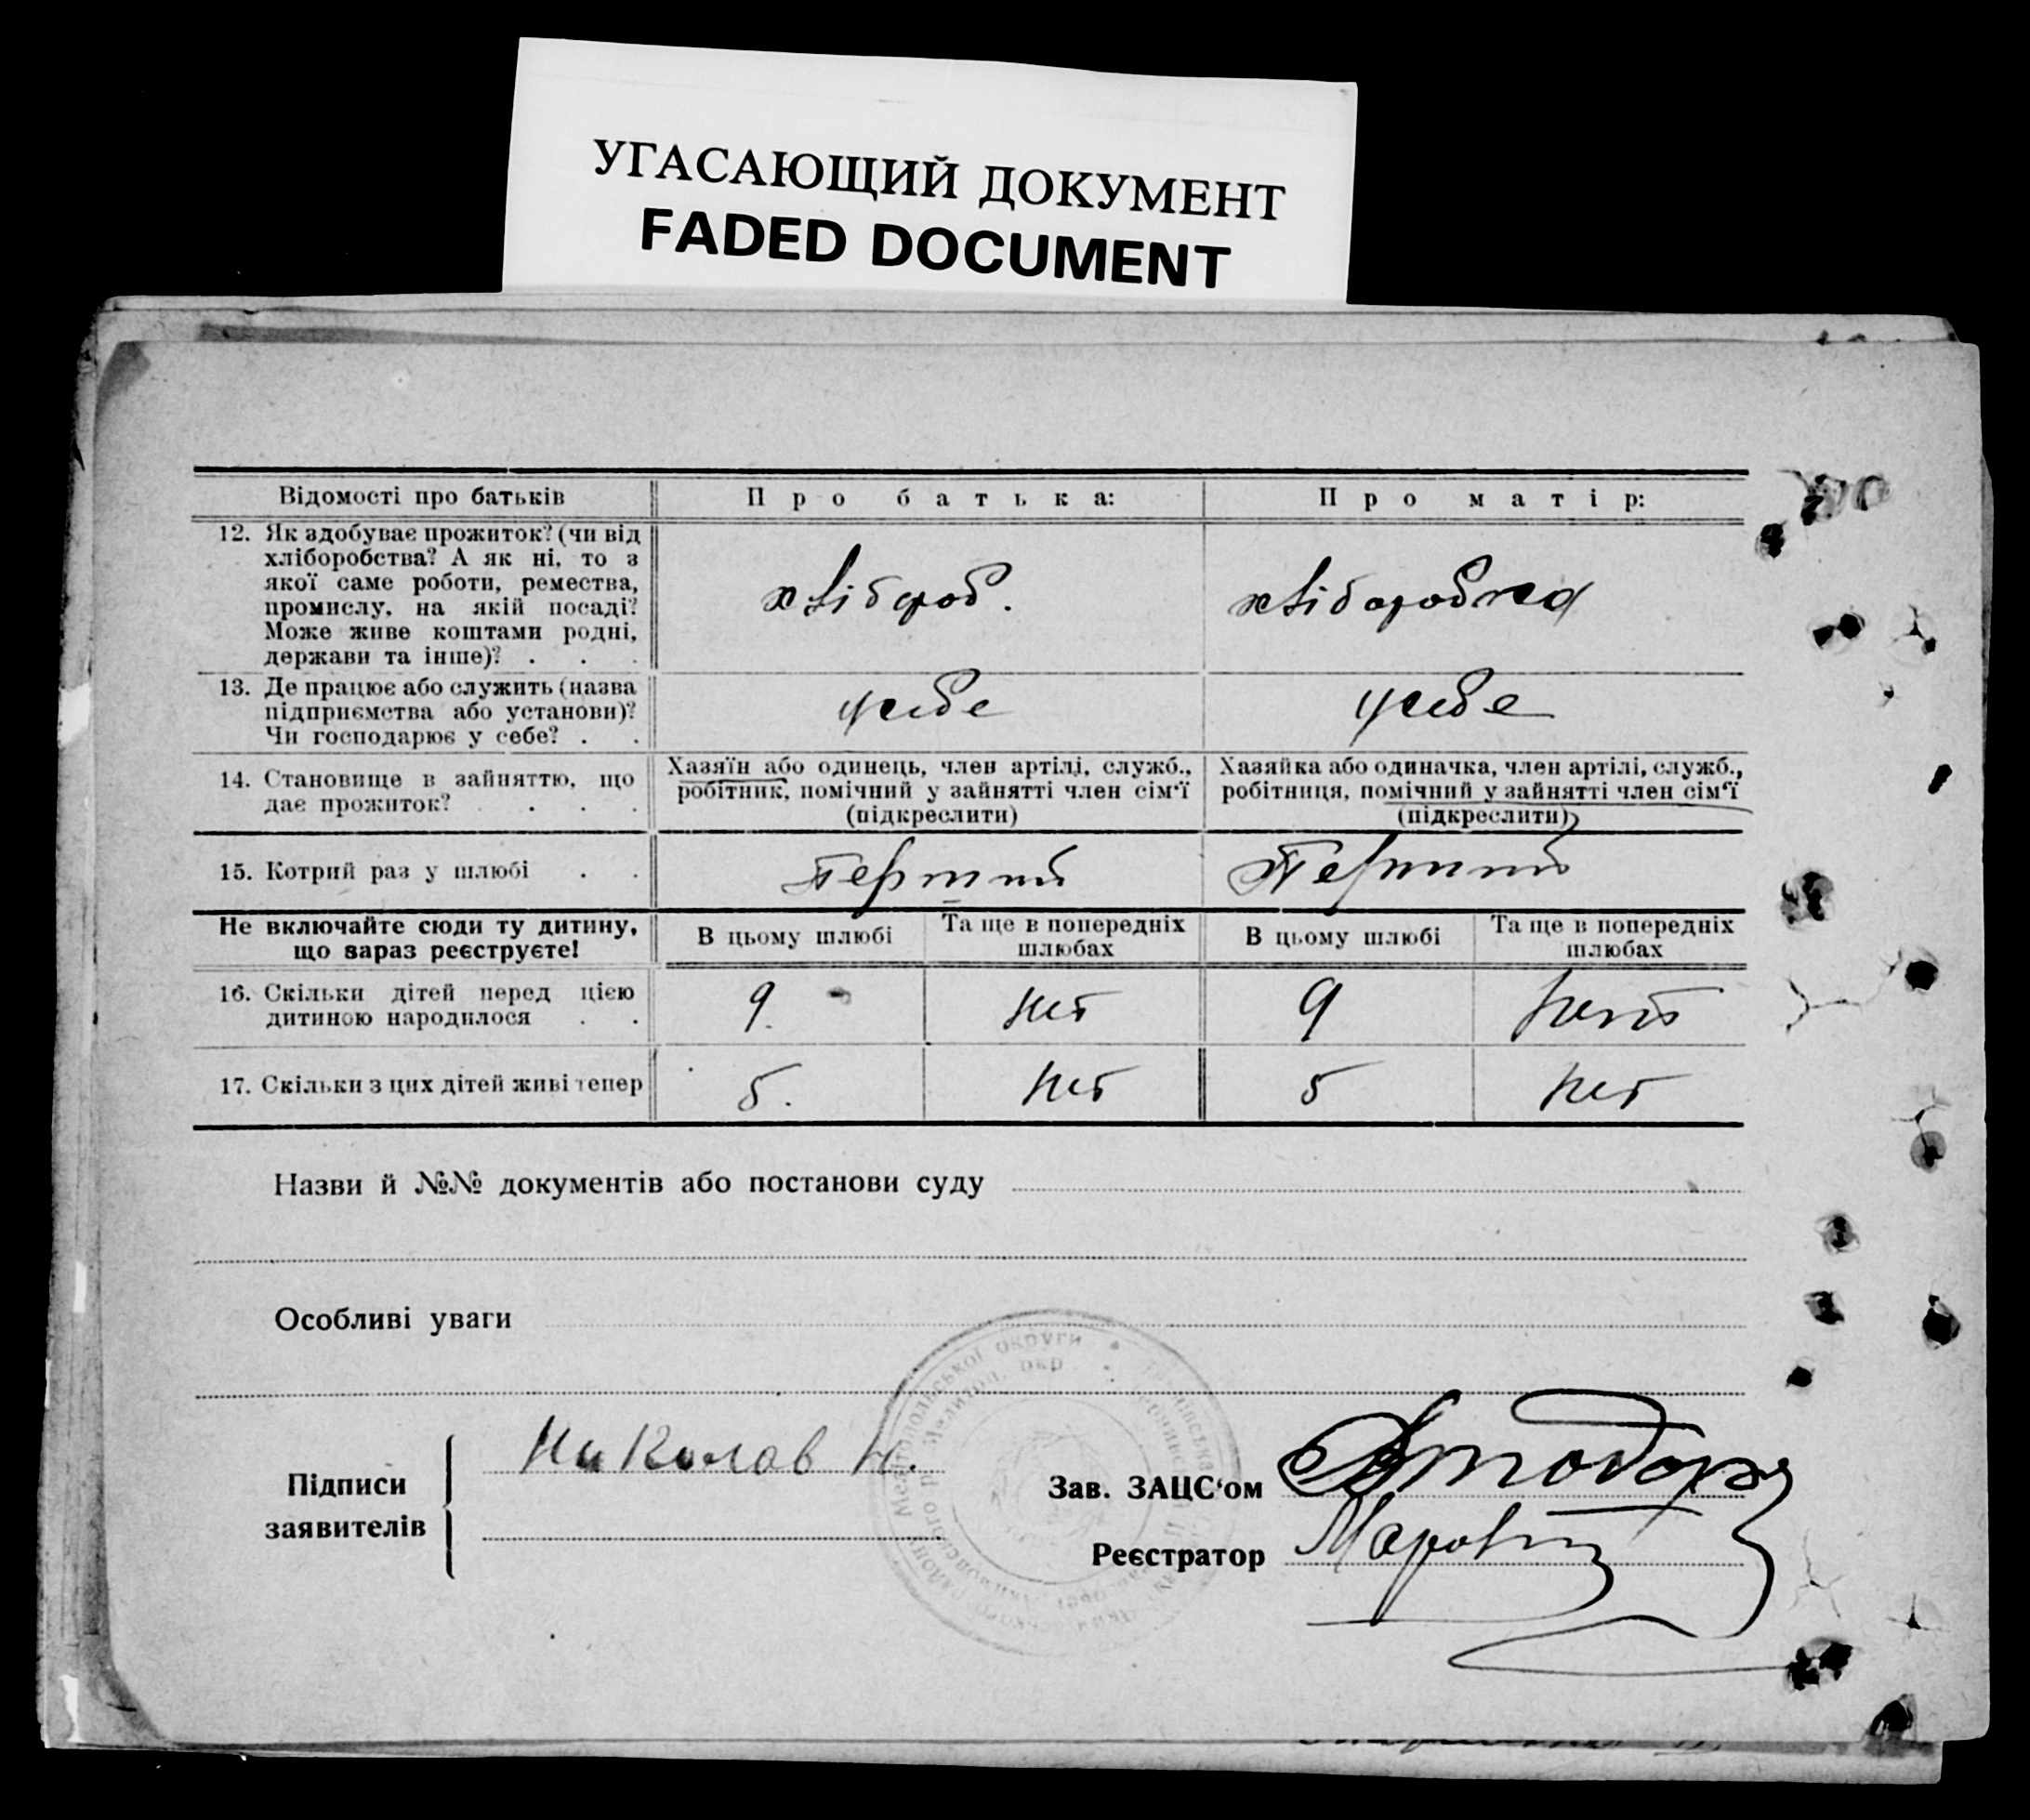 УГАСАЮЩИЙ ДОКУМЕНТ
FADED DOCUMENT
Відомості про батьків
Про батька:
Про матір:
12. Як здобуває прожиток? (чи від
хліборобства? А як ні, то з
якої саме роботи, ремества,
промислу, на якій посаді?
Може живе коштами родні,
держави та інше)? . . .
хлібороб.
хліборобка
13. Де працює або служить (назва
підприємства або установи)?
Чи господарює у себе? . .
усебе
усебе
14. Становище в зайняттю, що
дає прожиток? . . . .
Хазяїн або одинець, член артілі, служб.,
робітник, помічний у зайнятті член сім'ї
(підкреслити)
Хазяйка або одиначка, член артілі, служб.,
робітниця, помічний у зайнятті член сім'ї
(підкреслити)
15. Котрий раз у шлюбі . .
Перший
Перший
Не включайте сюди ту дитину,
що зараз реєструєте!
В цьому шлюбі
Та ще в попередніх
шлюбах
В цьому шлюбі
Та ще в попередніх
шлюбах
16. Скільки дітей перед цією
дитиною народилося . .
9.
нет
9
нет
17. Скільки з цих дітей живі тепер
5.
нет
5
нет
Назви й №№ документів або постанови суду
Особливі уваги
Мелітопольської округи
Підписи
заявителів
Николов Н.
Зав. ЗАЦС'ом
Реєстратор